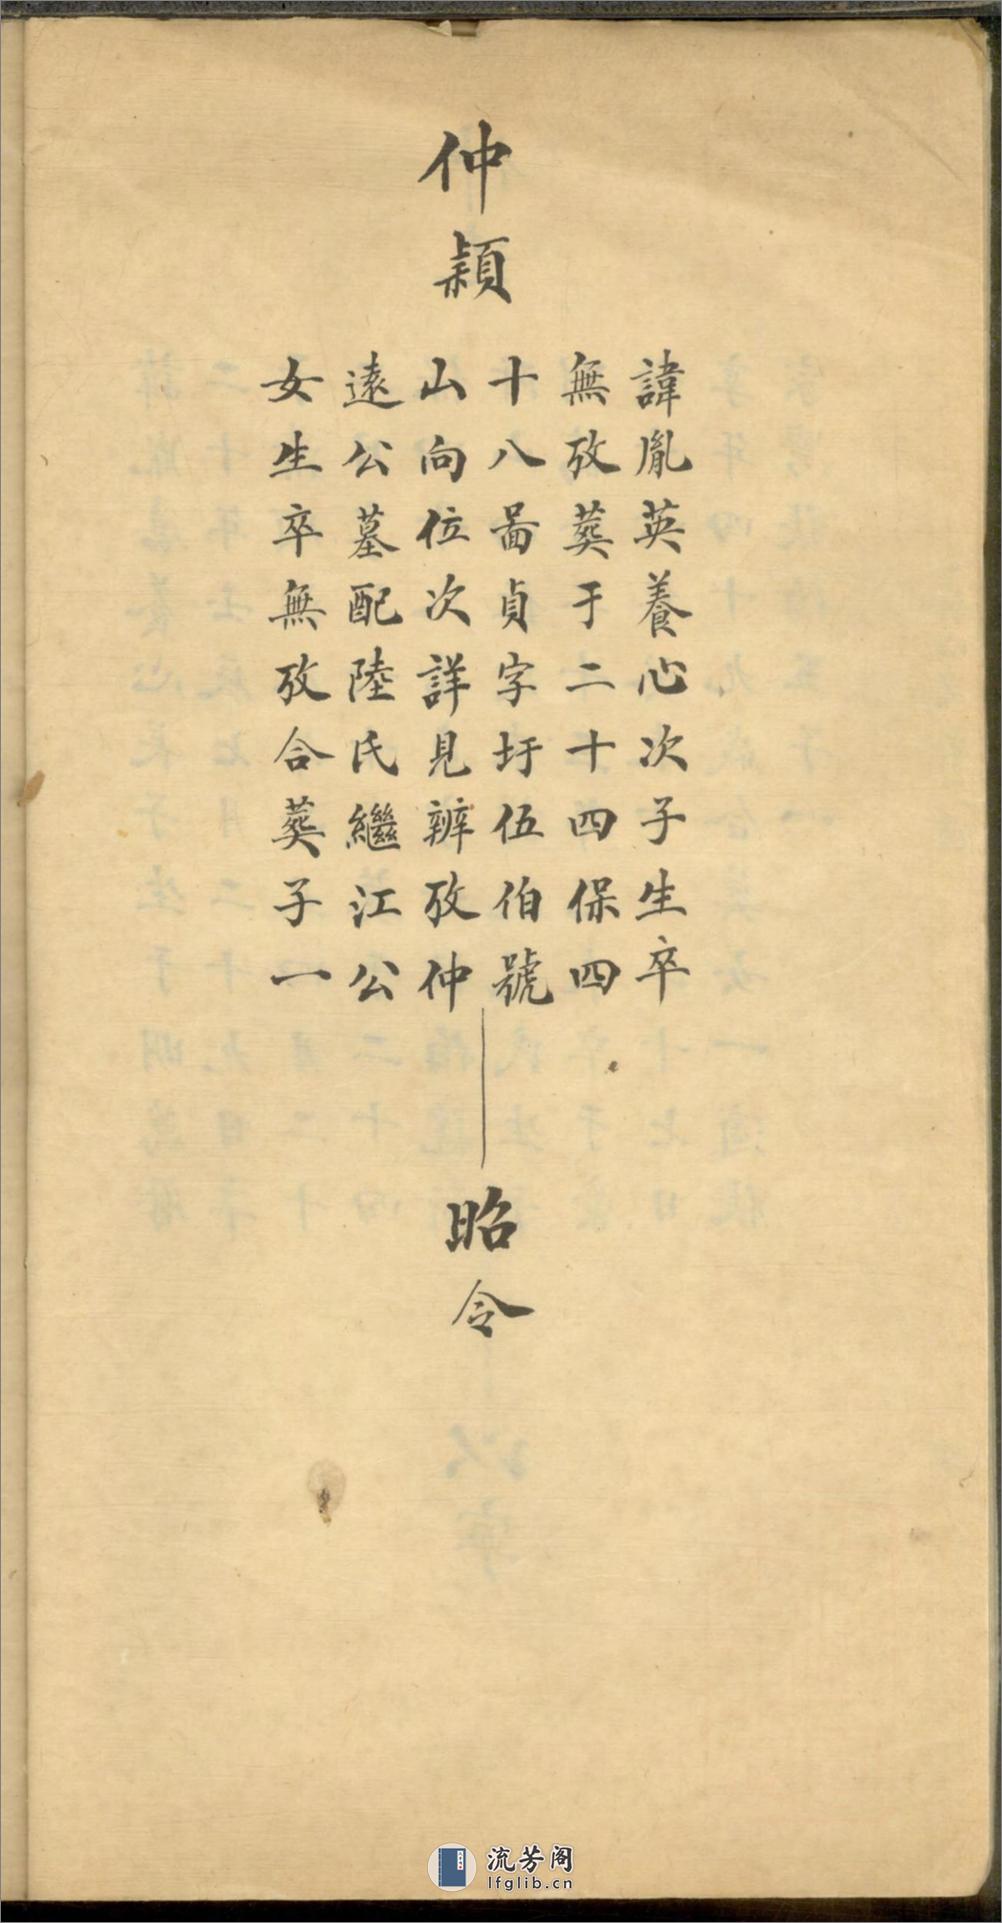 仲
頴
諱胤英養心次子生卒
無攷葬于二十四保四
十八啚貞字圩伍伯號
山向位次詳見辨攷仲
遠公墓配陸氏繼江公
女生卒無攷合葬子一
昭
令
流芳阁
lfglib.cn